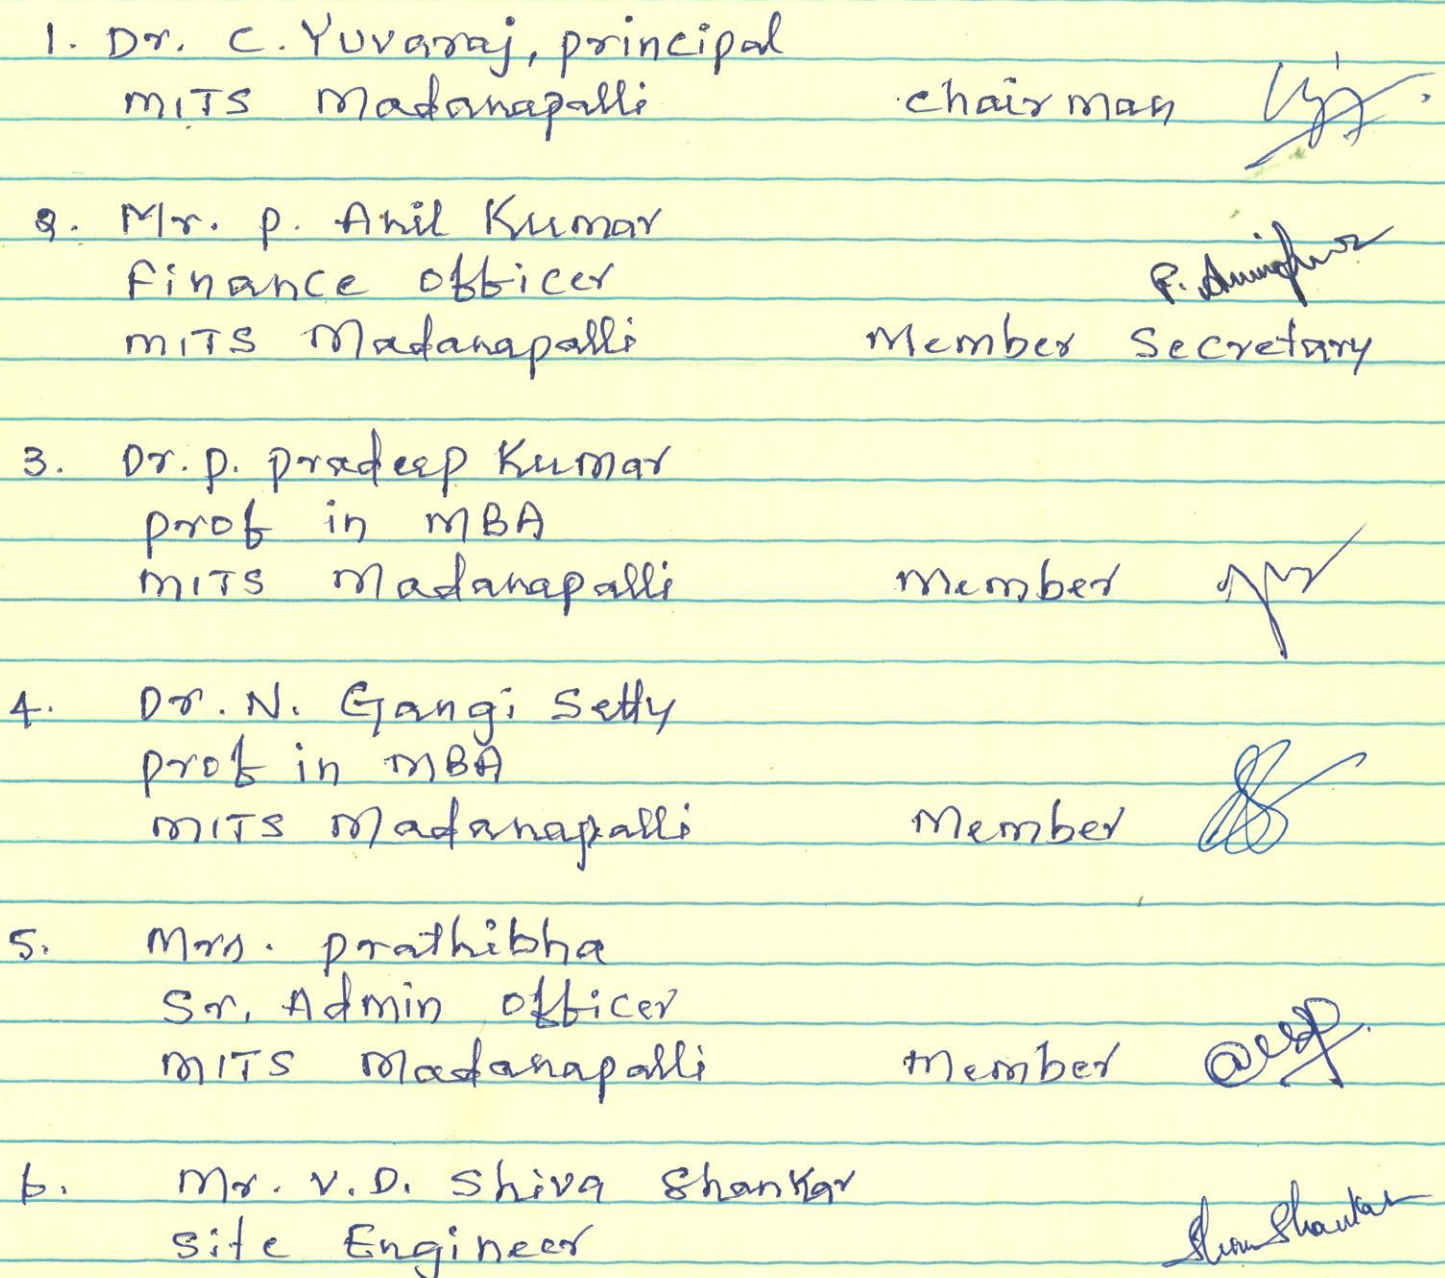 1. Dr. C. Yuvaraj, principal
MITS Madanapalli chairman
2. Mr. P. Anil Kumar
Finance officer
MITS Madanapalli Member Secretary
3. Dr. P. Pradeep Kumar
prof in MBA
MITS Madanapalli Member
4. Dr. N. Gangi Setty
prof in MBA
MITS Madanapalli Member
5. Mrs. Prathibha
Sr. Admin officer
MITS Madanapalli Member
6. Mr. V.D. Shiva Shankar
Site Engineer